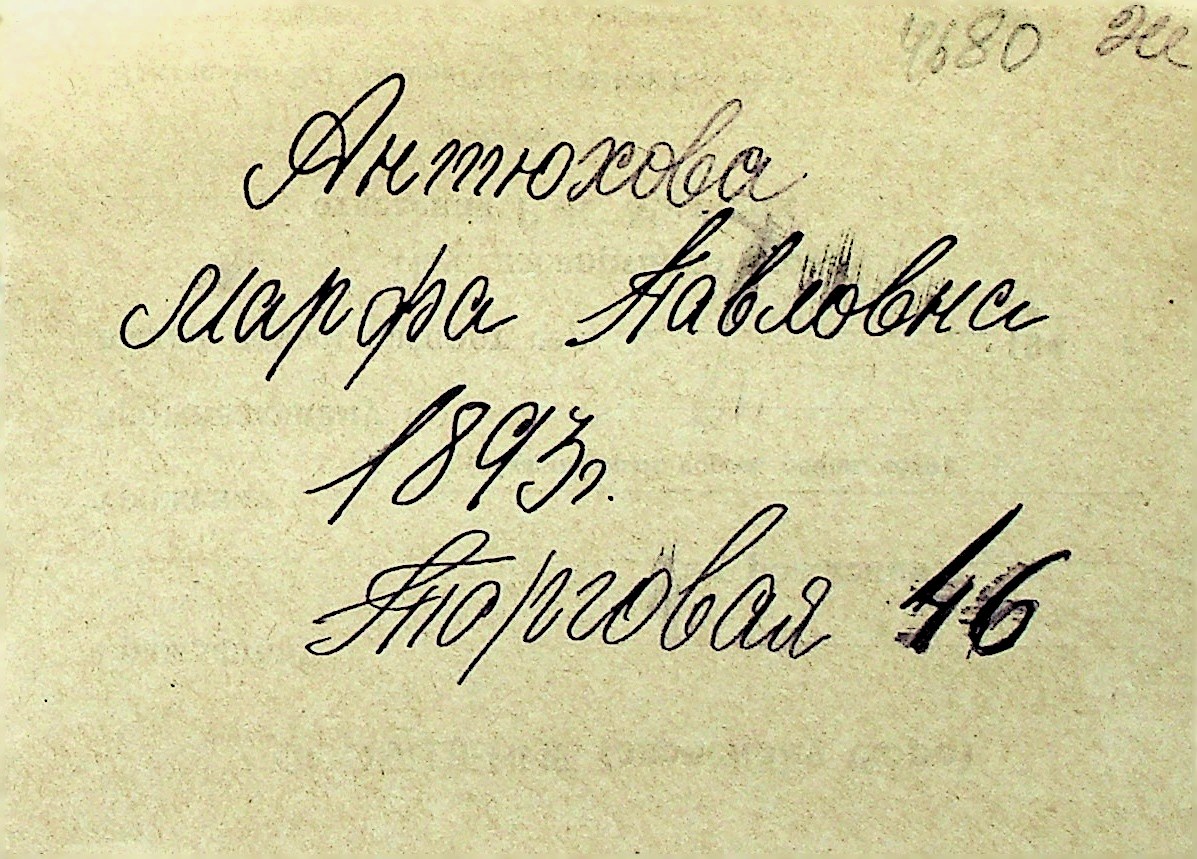 4680
Антюхова
Марфа Павловна
1893г.
Торговая 46